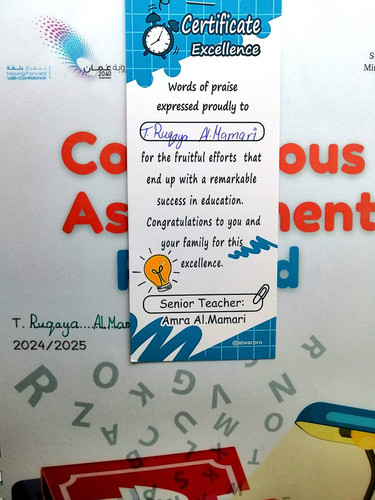 Certificate
Excellence
Words of praise
expressed proudly to
T. Ruqaya Al.Mamari
for the fruitful efforts that
end up with a remarkable
success in education.
Congratulations to you and
your family for this
excellence.
Senior Teacher:
Amra Al.Mamari
@alwarpro
Moving Forward
with Confidence
عمان
2040
Co
ous
As
ment
d
T. Ruqaya Al Mam
2024/2025